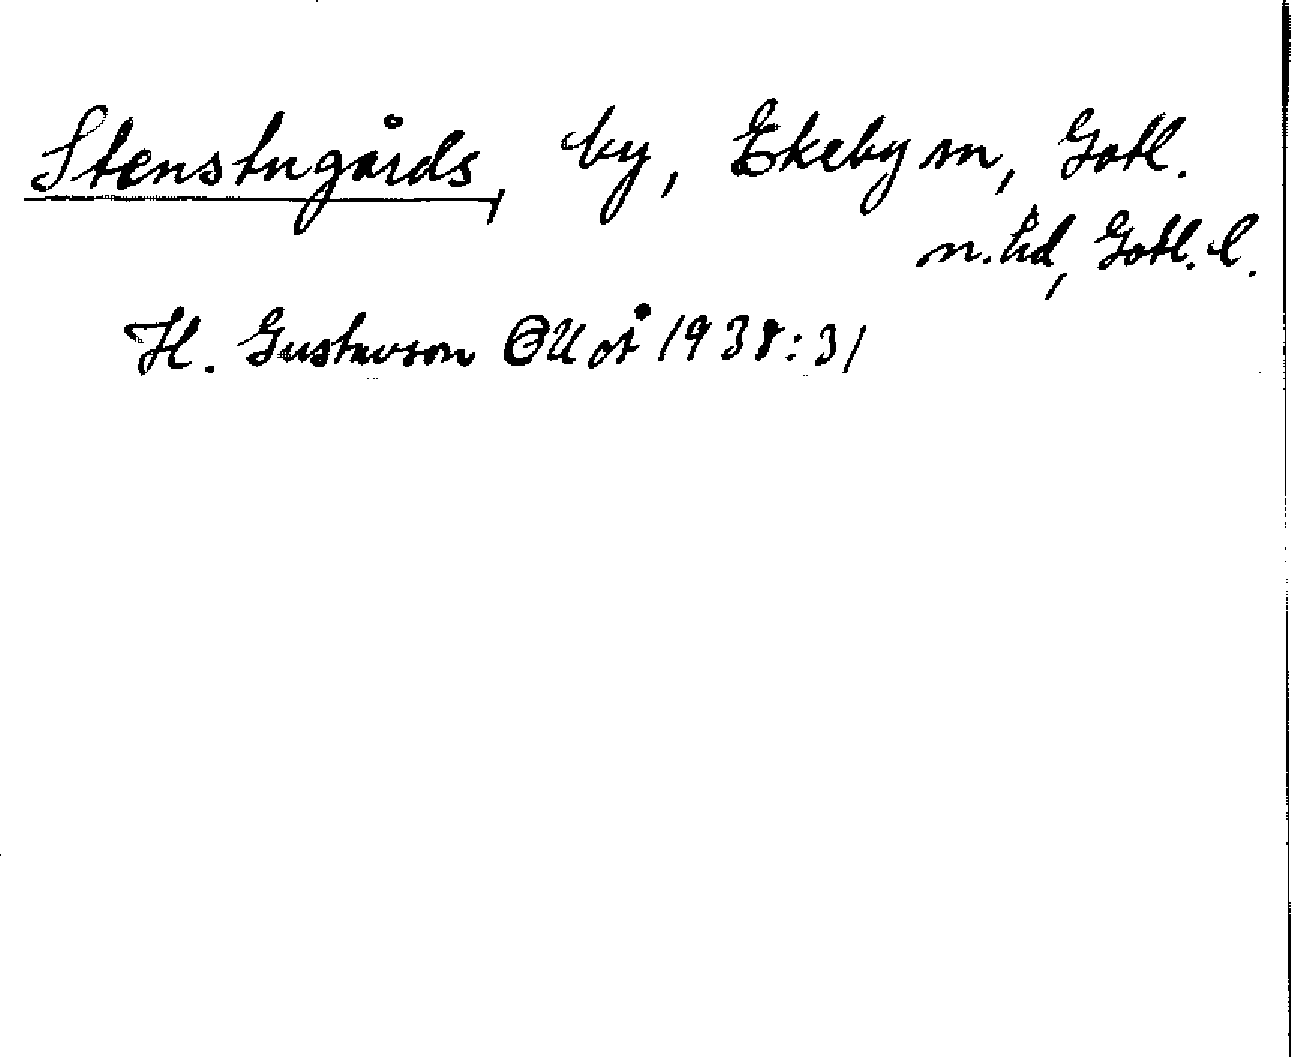 Stenstugårds, by, Ekeby sn, Gotl.
n. hd, Gotl. l.
H. Gustavson 1938:31